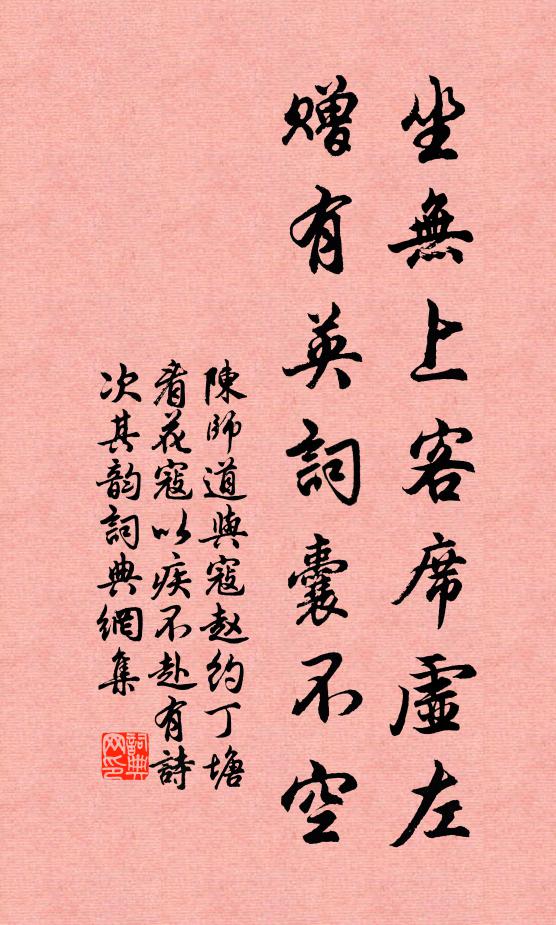 坐無上客席虛左
贈有英詞囊不空
陳師道與寇赵約丁塘
看花寇以疾不赴有詩
次其韵詞典網集
詞典
网印